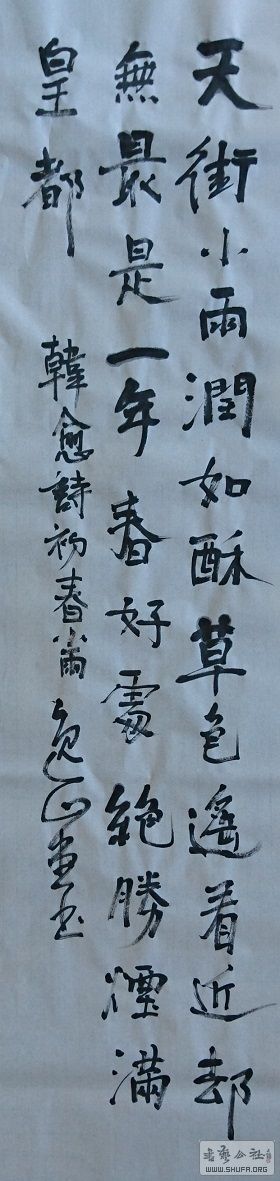 天街小雨潤如酥草色遙看近却
無最是一年春好處絕勝煙滿
皇都
韓愈詩初春小雨 逸山堂书
书艺公社
WWW.SHUFA.ORG